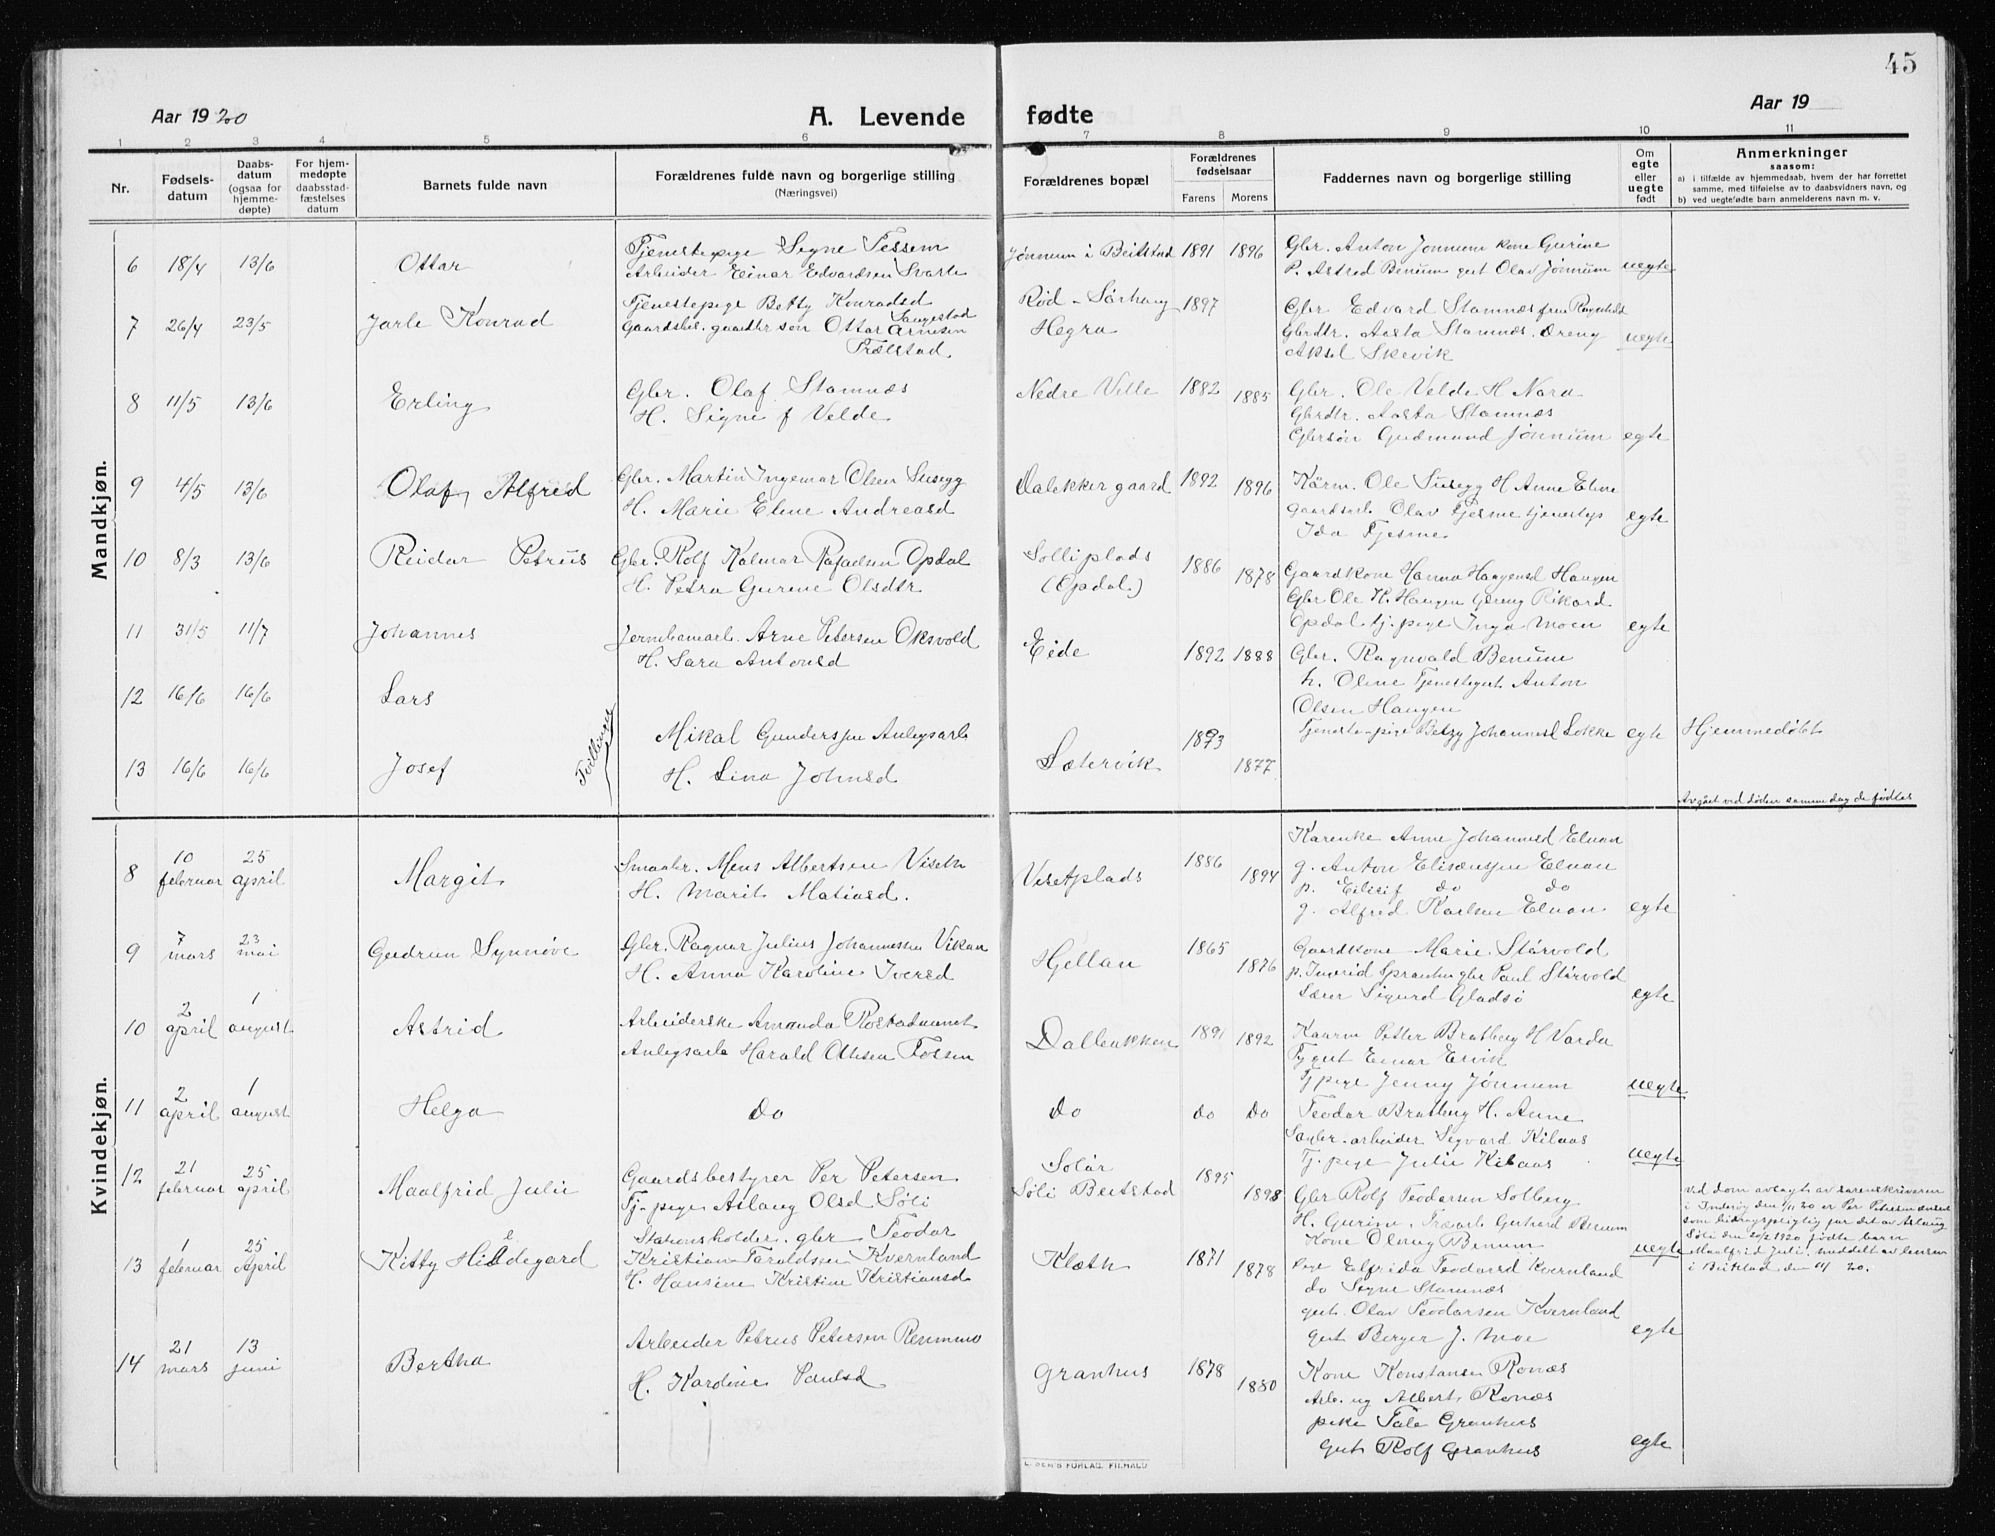 45
Aar 1920
A. Levende fødte
Aar 19
1 2 3 4 5 6 7 8 9 10 11
Nr.
Fødsels-
datum
Daabs-
datum
(ogsaa for
hjemme-
døpte)
For hjem-
medøpte
daabsstad-
fæstelses
datum
Barnets fulde navn
Forældrenes fulde navn og borgerlige stilling
(Næringsvei)
Forældrenes bopæl
Forældrenes
fødselsaar
Farens Morens
Faddernes navn og borgerlige stilling
Om
egte
eller
uegte
født
Anmerkninger
saasom:
a) i tilfælde av hjemmedaab, hvem der har forrettet
samme, med tilføielse av to daabsvidners navn, og
b) ved uegtefødte barn anmelderens navn m. v.
Mandkjøn.
6 18/4 13/6 Ottar
Tjenestepige Signe Tessem
Arbeider Einar Edvardsen Svarte
Jønnum i Beitstad 1891 1896
Gbr. Anton Jønnum kone Gurine
P. Astrid Benum gut Olav Jønnum uegte
7 26/4 23/5 Jarle Konrad
Tjenestepige Betty Konradsd
Langestad
Gaardsbest. gaardbr søn Ottar Arnesen
Prælstad.
Rød - Sørhaug 1897
Hegra
Gbr Edvard Stamnæs fru Ragnhild
Gbrdtr. Aasta Stamnæs. Dreng uegte
Aksel Skevik
8 11/5 13/6 Erling
Gbr. Olaf Stamnæs
H. Signe f Velde
Nedre Velle 1882 1885
Gbr. Ole Velde H Nora
Gbrdtr. Aasta Stamnæs
Gbrsøn Gudmund Jønnum egte
9 4/5 13/6 Olaf Alfred
Gbr. Martin Ingemar Olsen Susegg
H. Marie Eline Andreasd
Dalekker gaard 1892 1896
Kårm. Ole Susegg H Anne Eline
gaardsarb. Olav Fjesme tjenestep egte
Ida Fjesme
10 8/3 13/6 Reidar Petrus
Gbr. Rolf Kalmar Rafaelsen Opdal
H. Petra Gurine Olsdtr
Solliplads
(Opdal.) 1886 1878
Gaardkone Hanna Haugensd Haugen
Gbr Ole H. Haugen Dreng Rikard
Opdal tj. pige Inga Moen egte
11 31/5 11/7 Johannes
Jernbanearb. Arne Petersen Oksvold
H. Sara Antonsd
Eide 1892 1888
Gbr. Ragnvald Benum
h. Oline Tjenestegut Anton
Olsen Haugen
12 16/6 16/6 Lars
Tvillinger
13 16/6 16/6 Josef
Mikal Gundersen Anlegsarb
H. Lina Johnsd
Sætervik 1893 1877
Tjeneste-pige Betzy Johannesd Løkke egte
Hjemmedøbt
Avgået ved døden samme dag de fødtes
Kvindekjøn.
8 10 februar 25 april Margit
Smaabr. Mens Albertsen Viseth
H. Marit Matiasd.
Visetplads 1886 1894
Karenke Anne Johannesd Elnan
g. Anton Elisæussen Elnan
p. Eilisif do do
g. Alfred Karlsen Elnan. egte
9 7 mars 23 mai Gudrun Synnøve
Gbr. Ragnar Julius Johannessen Vikan
H. Anna Karoline Iversd
Hjellan 1865 1876
Gaardkone Marie Størvold
p. Ingrid Sprauten gbr Paul Størvold
Lærer Sigurd Gladsø egte
10 2 april 1 august Astrid
Arbeiderske Amanda Rostadaunet
Anlegsarb Harald Othesen Fossem
Dalbakken 1891 1892
Kaarm Petter Bratberg H Varda
Tj gut Einar Ervik
Tj pige Jenny Jønnum uegte
11 2 april 1 august Helga
Do Do Do Do
Teodor Bratberg H. Anne
Sagbr.-arbeider Sigvard Kilaas
Tj. pige Julie Kilaas uegte
12 21 februar 25 april Maalfrid Julie
Gaardsbestyrer Per Petersen
Tj-pige Aslaug Olsd Søli
Solår
Søli Beitstad 1895 1898
Gbr Rolf Teodorsen Solberg
H. Gurine. Træarb Gerhard Benum
Kone Olaug Benum uegte
ved dom avlagt av sorenskriveren
i Inderøy den 1/11 20 er Per Petersen anset
som bidragspligtig for det av Aslaug
Søli den 20/2 1920 fødte barn
Maalfrid Juli, meddelt av lensm
i Beitstad den 11/ 20.
13 1 februar 25 April Kitty Hildegard
Stationsholder. gbr Teodor
Kristian Taraldsen Kvernland
H. Hansine Kristine Kristiansd
Klæth 1871 1878
Pige Elfrida Teodorsd Kvernland
do Signe Stamnæs
gut. Olav Teodorsen Kvernland
Gut Berger J. Moe egte
14 21 mars 13 juni Bertha
Arbeider Petrus Petersen Remmmo
H. Karoline Paulsd
Granhus 1878 1880
Kone Konstanse Ronæs
Arb. ug Albert Ronæs
pike Tale Granhus
Gut Rolf Granhus egte